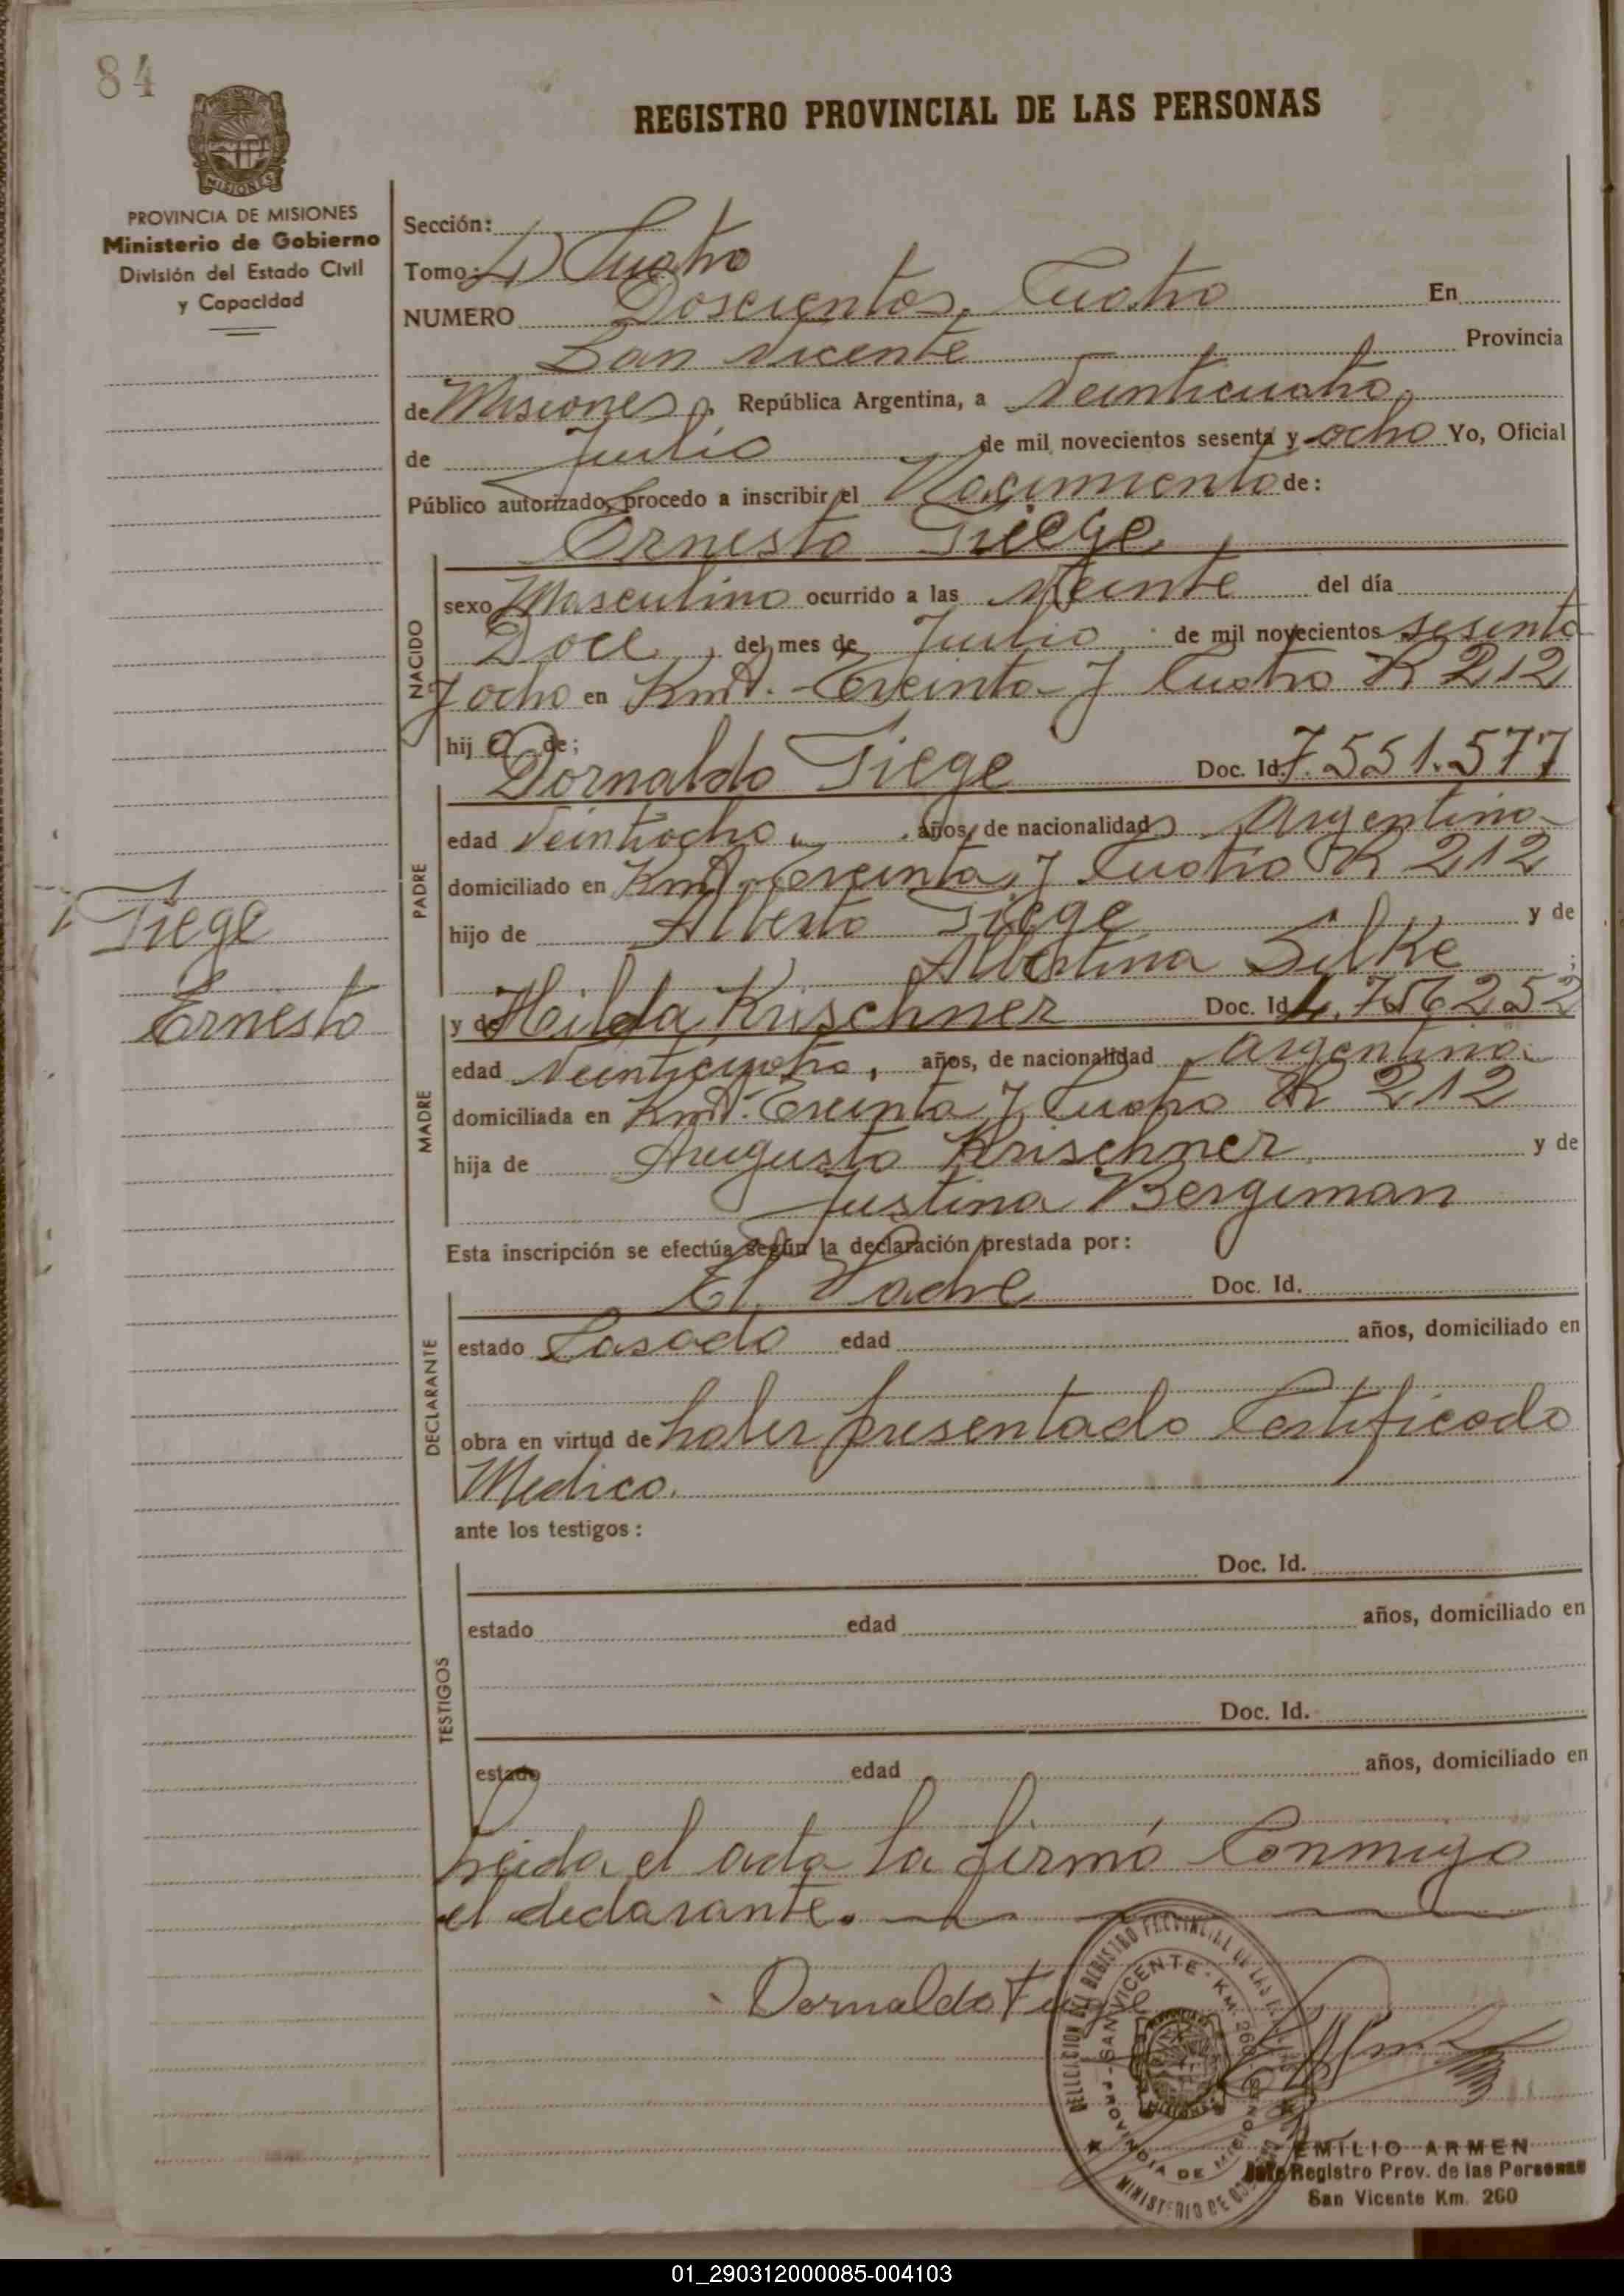 84
REGISTRO PROVINCIAL DE LAS PERSONAS
MISIONES
PROVINCIA DE MISIONES
Ministerio de Gobierno
División del Estado Civil
y Capacidad
Sección:
Tomo: 4) Cuatro
NUMERO Doscientos, Cuatro En
San Vicente Provincia
de Misiones, República Argentina, a Veinticuatro,
de Julio de mil novecientos sesenta y ocho Yo, Oficial
Público autorizado, procedo a inscribir el Nacimiento de:
Ernesto Tiege
NACIDO
sexo Masculino ocurrido a las Veinte del día
Doce, del mes de Julio de mil novecientos sesenta
y ocho en Kmt. Treinta y Cuatro R 212
hijo de;
PADRE
Dornaldo Tiege Doc. Id. 7.551.577
edad Veintiocho años, de nacionalidad Argentina
domiciliado en Kmt. Treinta y Cuatro R 212
hijo de Alberto Tiege y de
Albertina Silke ;
Tiege
Ernesto
MADRE
y de Hilda Krischner Doc. Id. 4.756252
edad Veinticuatro, años, de nacionalidad Argentina
domiciliada en Kmt. Treinta y Cuatro R 212
hija de Augusto Krischner y de
Justina Bergiman
Esta inscripción se efectúa según la declaración prestada por:
DECLARANTE
El Padre Doc. Id.
estado Casado edad años, domiciliado en
obra en virtud de haber presentado Certificado
Medico.
ante los testigos:
TESTIGOS
Doc. Id.
estado edad años, domiciliado en
Doc. Id.
estado edad años, domiciliado en
Leida el acta la firmó Conmigo
el declarante.
Dornaldo Tiege
DELEGACION DEL REGISTRO PROVINCIAL DE LAS
SAN VICENTE - KM. 260
PROVINCIA DE MISIONES
MINISTERIO DE GOBIERNO
EMILIO ARMEN
Jefe Registro Prov. de las Personas
San Vicente Km. 260
01_290312000085-004103